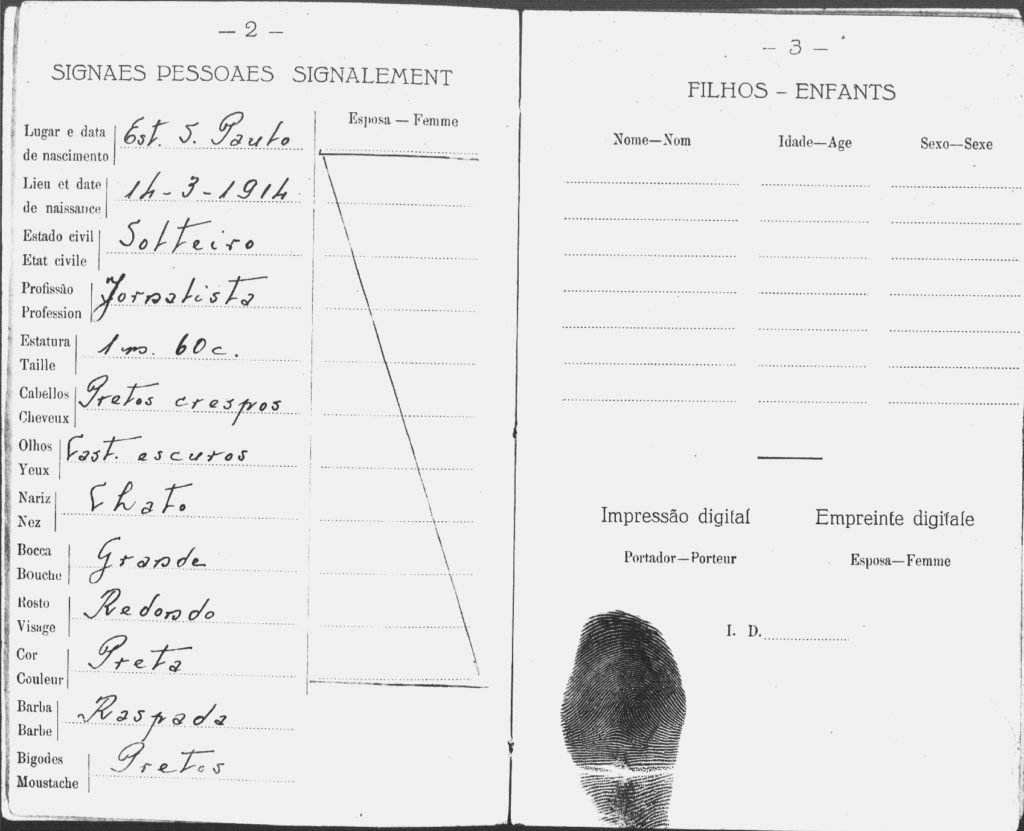 — 2 —
SIGNAES PESSOAES SIGNALEMENT
Esposa — Femme
Lugar e data
de nascimento
Est. S. Paulo
Lieu et date
de naissance
14-3-1914
Estado civil
Etat civile
Solteiro
Profissão
Profession
Jornalista
Estatura
Taille
1 m. 60 c.
Cabellos
Cheveux
Pretos crespos
Olhos
Yeux
Cast. escuros
Nariz
Nez
Chato
Bocca
Bouche
Grande
Rosto
Visage
Redondo
Cor
Couleur
Preta
Barba
Barbe
Raspada
Bigodes
Moustache
Pretos
— 3 —
FILHOS – ENFANTS
Nome—Nom Idade—Age Sexo—Sexe
Impressão digital Empreinte digitale
Portador—Porteur Esposa—Femme
I. D.